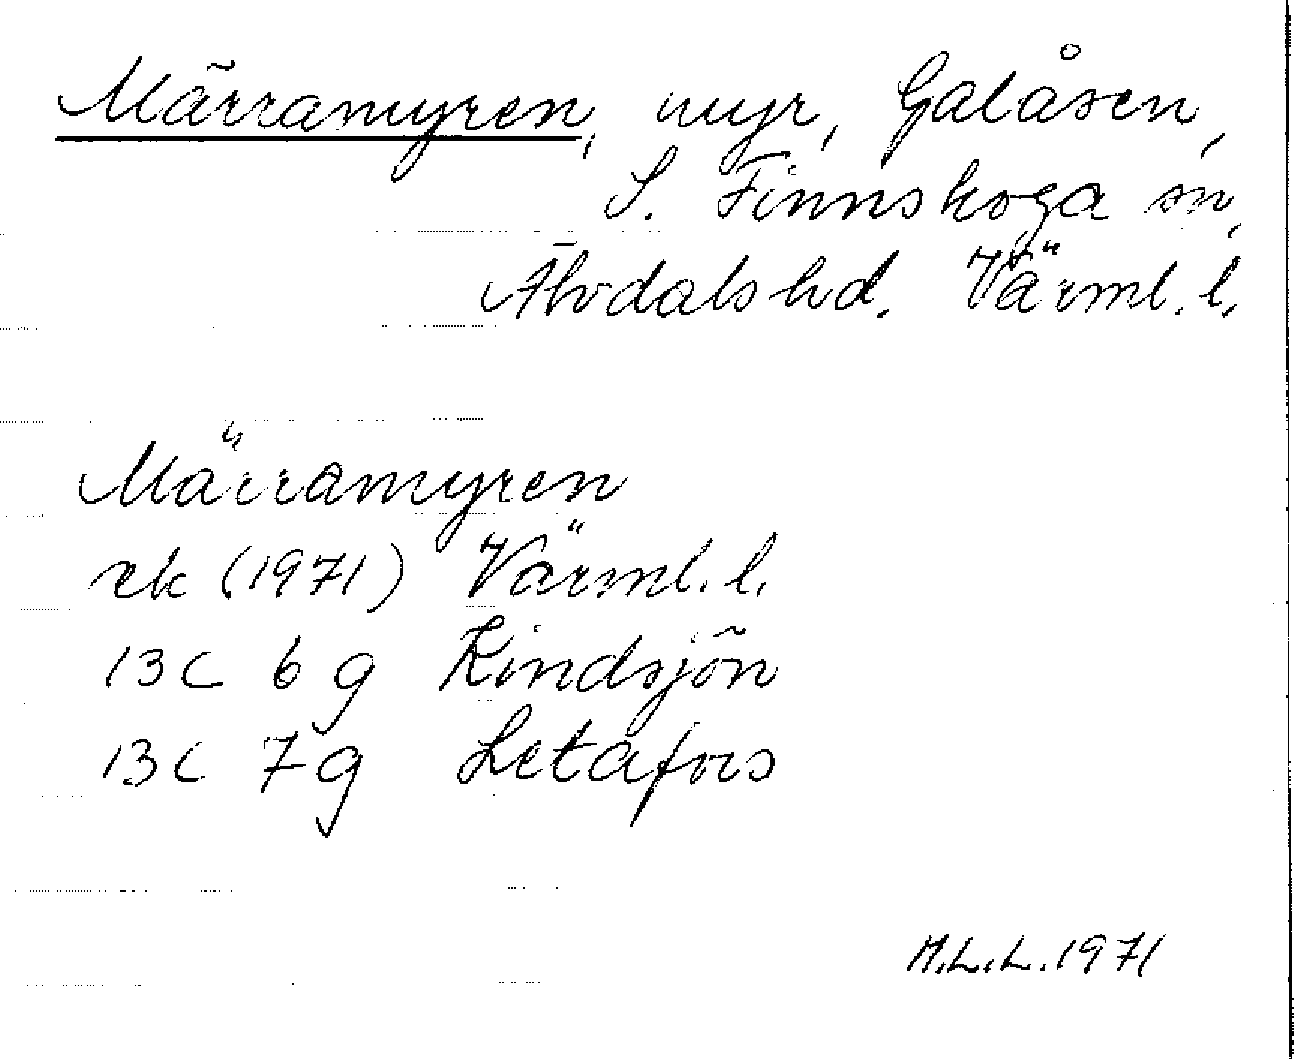 Märramyren, myr, Galåsen,
S. Finnskoga sn,
Älvdals hd. Värml. l.
Märramyren
rek (1971) Värml. l.
13C 6g Kindsjön
13C 7g Letafors
M.L.L. 1971